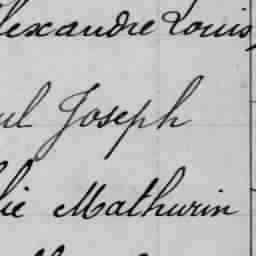 lexandre Louis,
ul Joseph
lie Mathurin